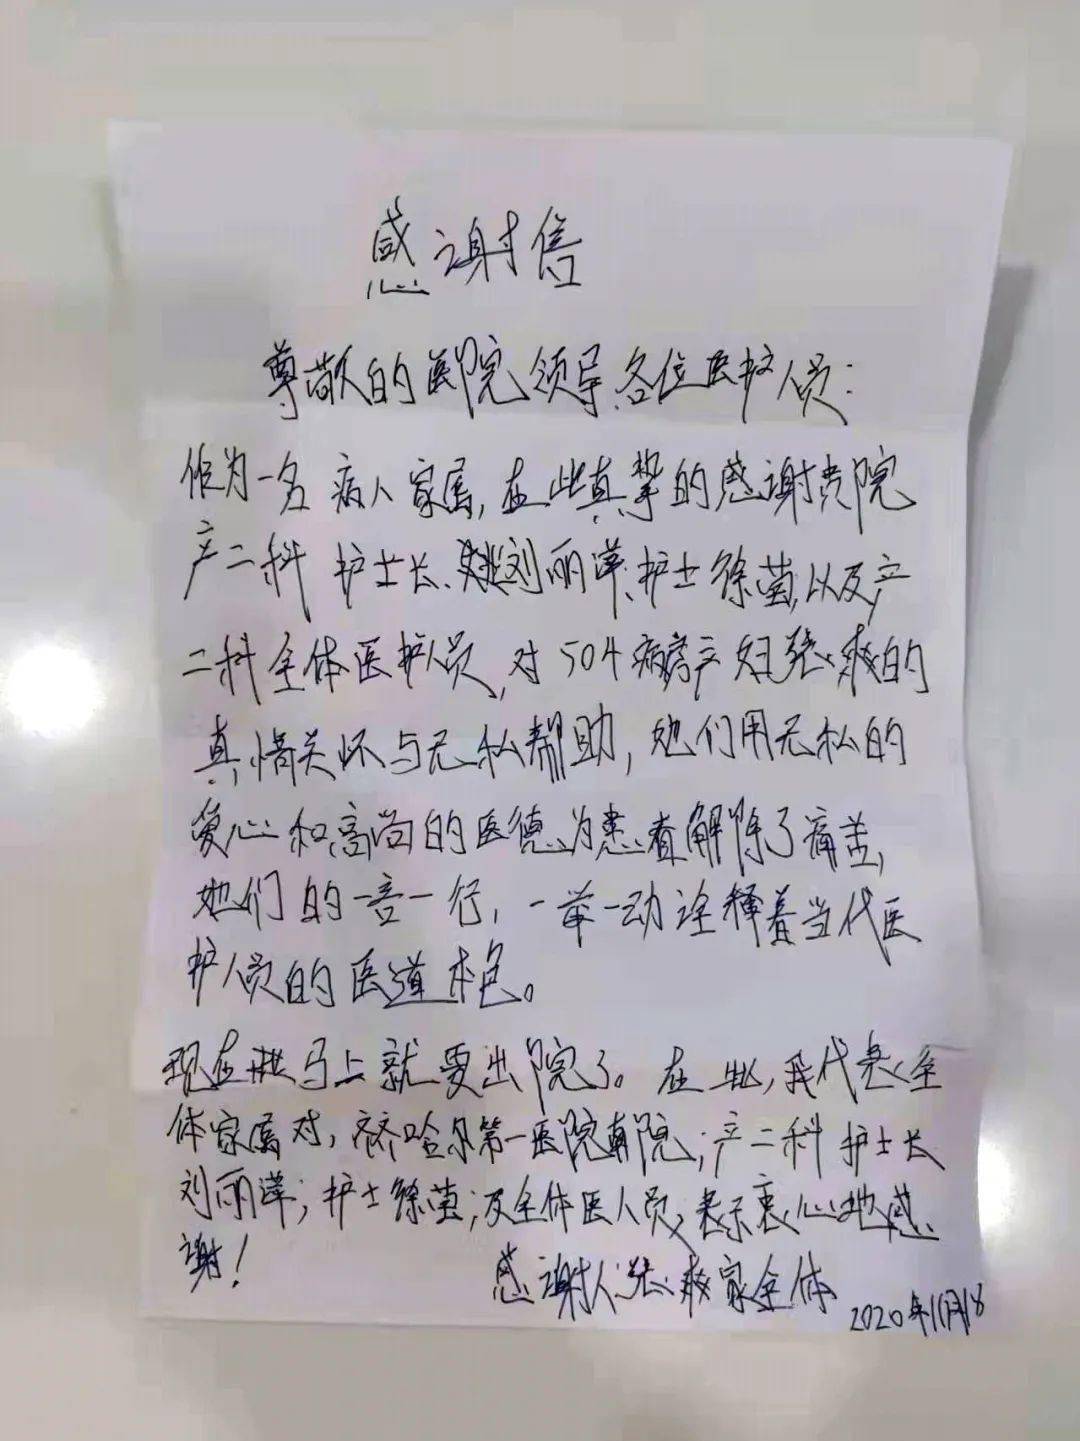 感谢信
尊敬的医院领导、各位医护人员：
作为一名病人家属，在此真挚的感谢贵院
产二科 护士长、刘丽萍、护士徐茵，以及产
二科全体医护人员，对504病房产妇张爽的
真情关怀与无私帮助，她们用无私的
爱心和高尚的医德，为患者解除了痛苦，
她们的一言一行，一举一动诠释着当代医
护人员的医道本色。
现在马上就要出院了。在此，我代表全
体家属对，齐齐哈尔第一医院南院；产二科 护士长
刘丽萍；护士徐茵；及全体医人员，表示衷心地感
谢！
感谢人：张爽家全体
2020年11月18